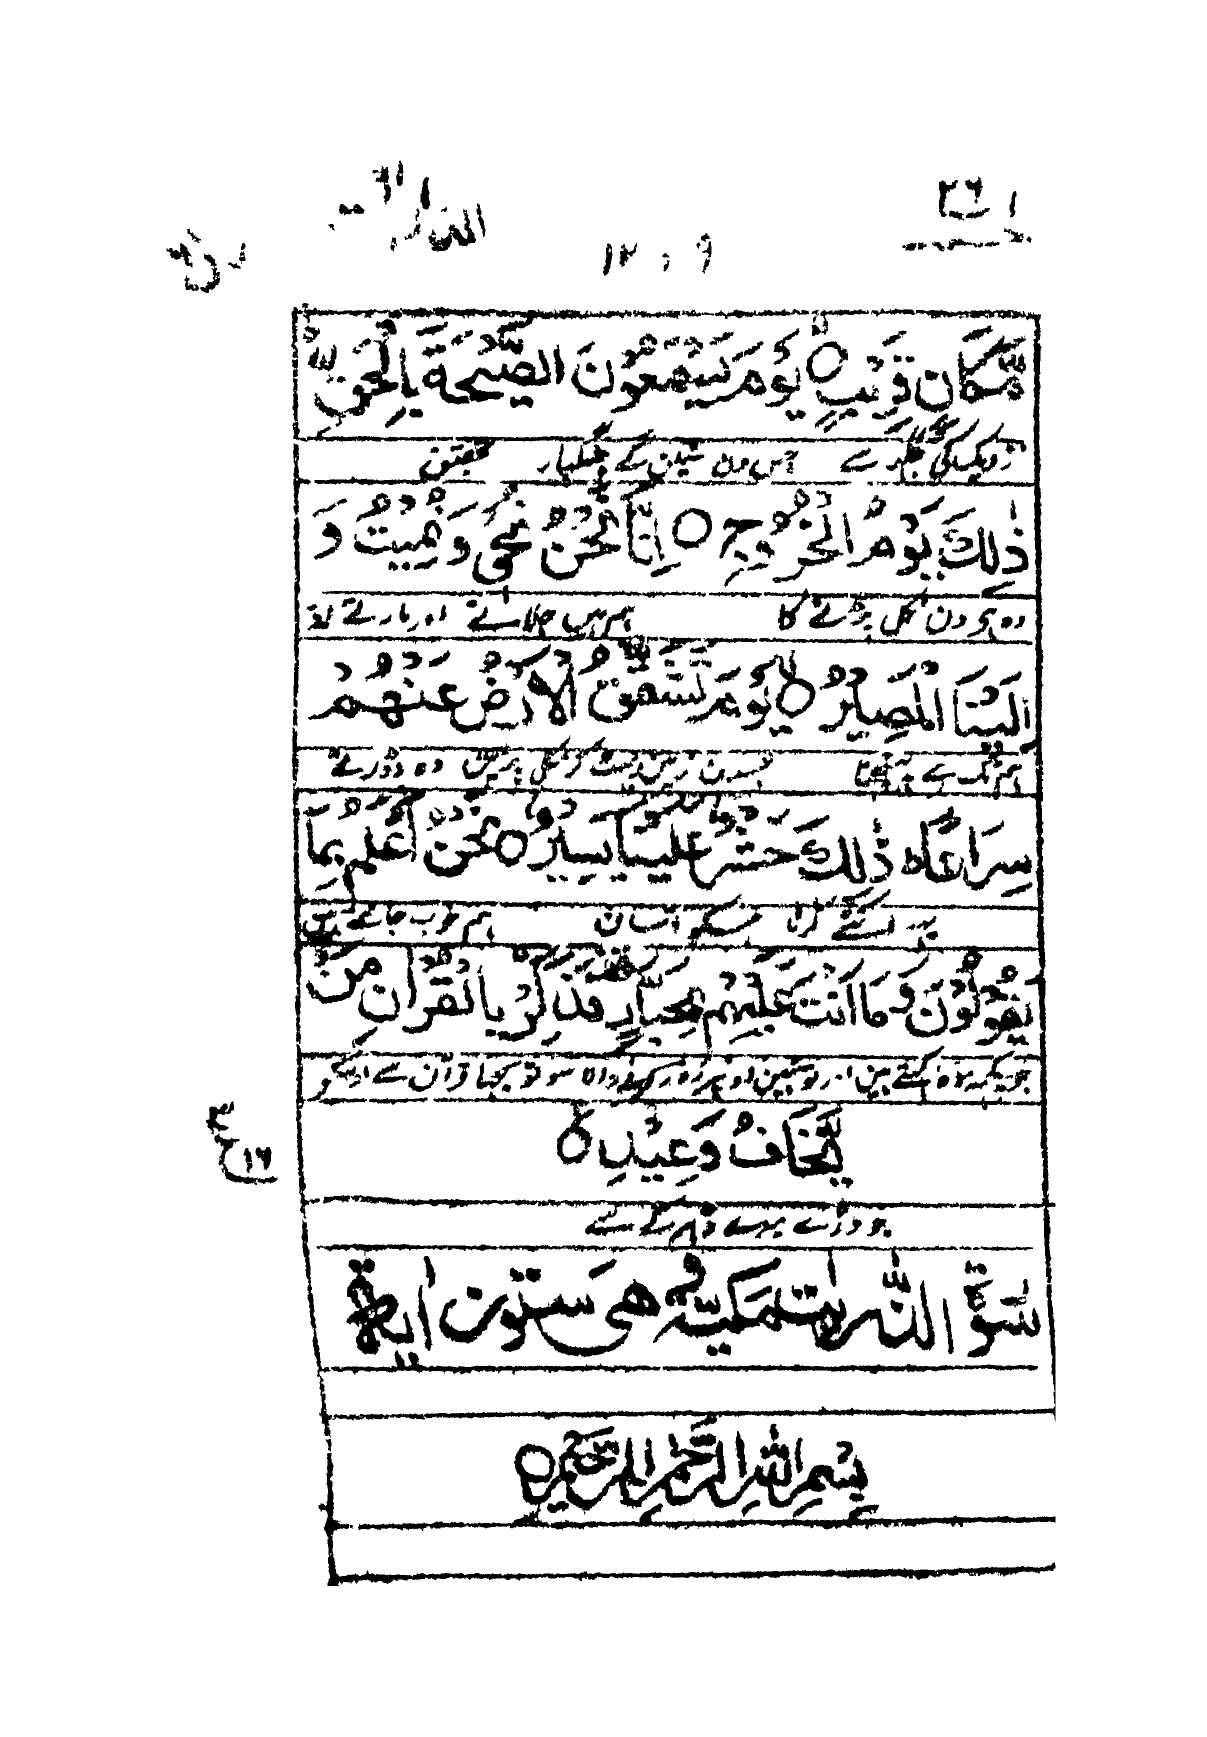 حٰمٓ ٢٦
الذّٰریٰت ٥١
ق ٥٠
١٢٠٩
مَّكَانٍ قَرِیْبٍ ۝ یَّوْمَ یَسْمَعُوْنَ الصَّیْحَةَ بِالْحَقِّ ؕ
نزدیک کی جگہ سے جس دن سنیں گے چنگھاڑ تحقیق
ذٰلِكَ یَوْمُ الْخُرُوْجِ ۝ اِنَّا نَحْنُ نُحْیٖ وَ نُمِیْتُ وَ
وہ ہی دن نکل پڑنے کا ہم ہیں جلاتے اور مارتے اور
اِلَیْنَا الْمَصِیْرُ ۝ یَوْمَ تَشَقَّقُ الْاَرْضُ عَنْهُمْ
ہم تک ہے پہنچنا جس دن زمین پھٹ کر نکل پڑیں وہ دوڑتے
سِرَاعًا ؕ ذٰلِكَ حَشْرٌ عَلَیْنَا یَسِیْرٌ ۝ نَحْنُ اَعْلَمُ بِمَا
یہ اکٹھے کرنا ہمکو آسان ہم خوب جانتے ہیں
یَقُوْلُوْنَ وَ مَاۤ اَنْتَ عَلَیْهِمْ بِجَبَّارٍ فَذَكِّرْ بِالْقُرْاٰنِ مَنْ
جو کچھ وہ کہتے ہیں اور تو نہیں اون پر زور کرنے والا سو تو سمجھا قرآن سے اوسکو
یَّخَافُ وَعِیْدِ ۝
ع ٣ ١٦
جو ڈرے میرے ڈرانے سے
سُوْرَةُ الذّٰرِیٰتِ مَكِّیَّةٌ وَّ هِیَ سِتُّوْنَ اٰیَةً
بِسْمِ اللّٰهِ الرَّحْمٰنِ الرَّحِیْمِ ۝